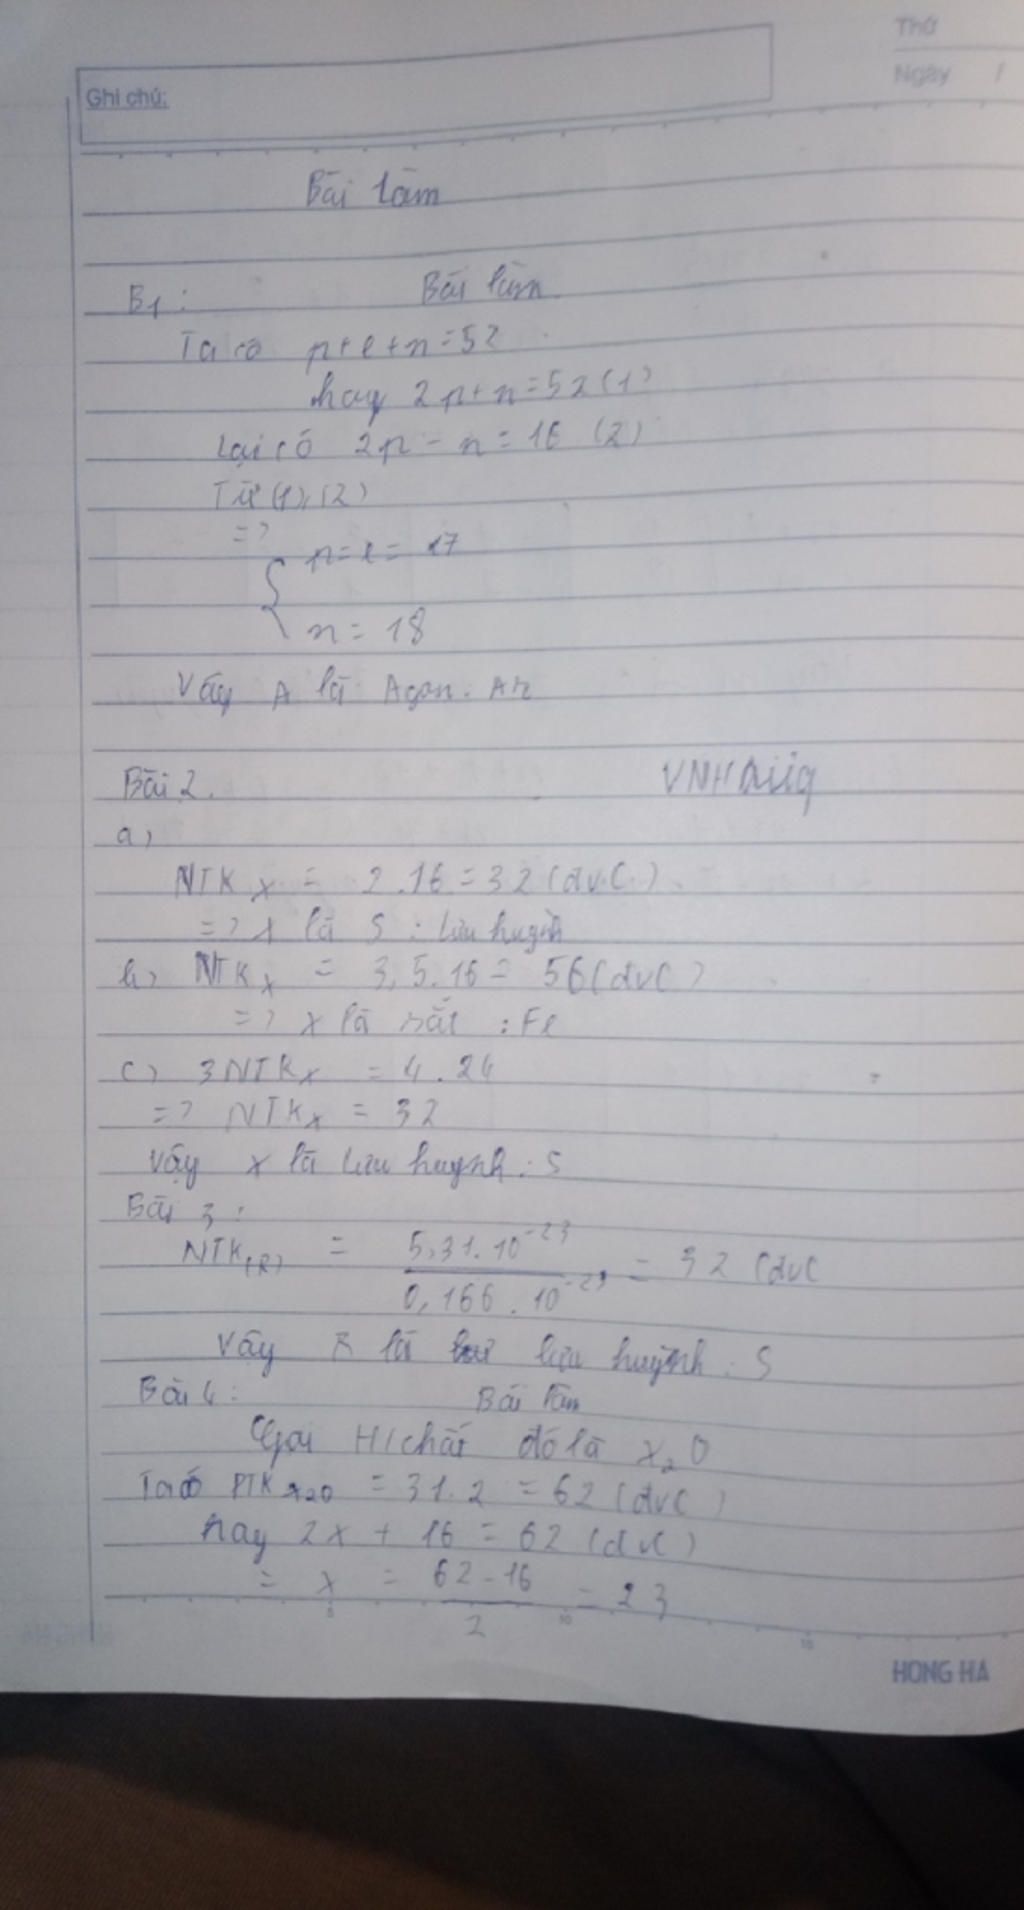 Thứ
Ngày /
Ghi chú:
Bài làm
B1: Bài làm
Ta có p+e+n=52
hay 2p+n=52(1)
Lại có 2p-n=16 (2)
Từ (1),(2)
=>
{ p=e=17
n=18
Vậy A là Agon: Ar
Bài 2.
a)
NTK x = 2.16=32(đv.C.)
=> x là S: Lưu huỳnh
b) NTK x = 3,5.16= 56(đvC)
=> x là sắt: Fe
c) 3NTK x = 4.24
=> NTK x = 32
Vậy x là lưu huỳnh: S
Bài 3:
NTK(R) = 5,31.10^-23 / 0,166.10^-23 = 32 (đvC
Vậy R là lưu huỳnh: S
Bài 4: Bài làm
Gọi H/chất đó là x₂O
Ta có PTK x2O = 31.2 = 62(đvC)
hay 2x + 16 = 62 (đvC)
= x = 62-16 / 2 = 23
5 10 15
HONG HA